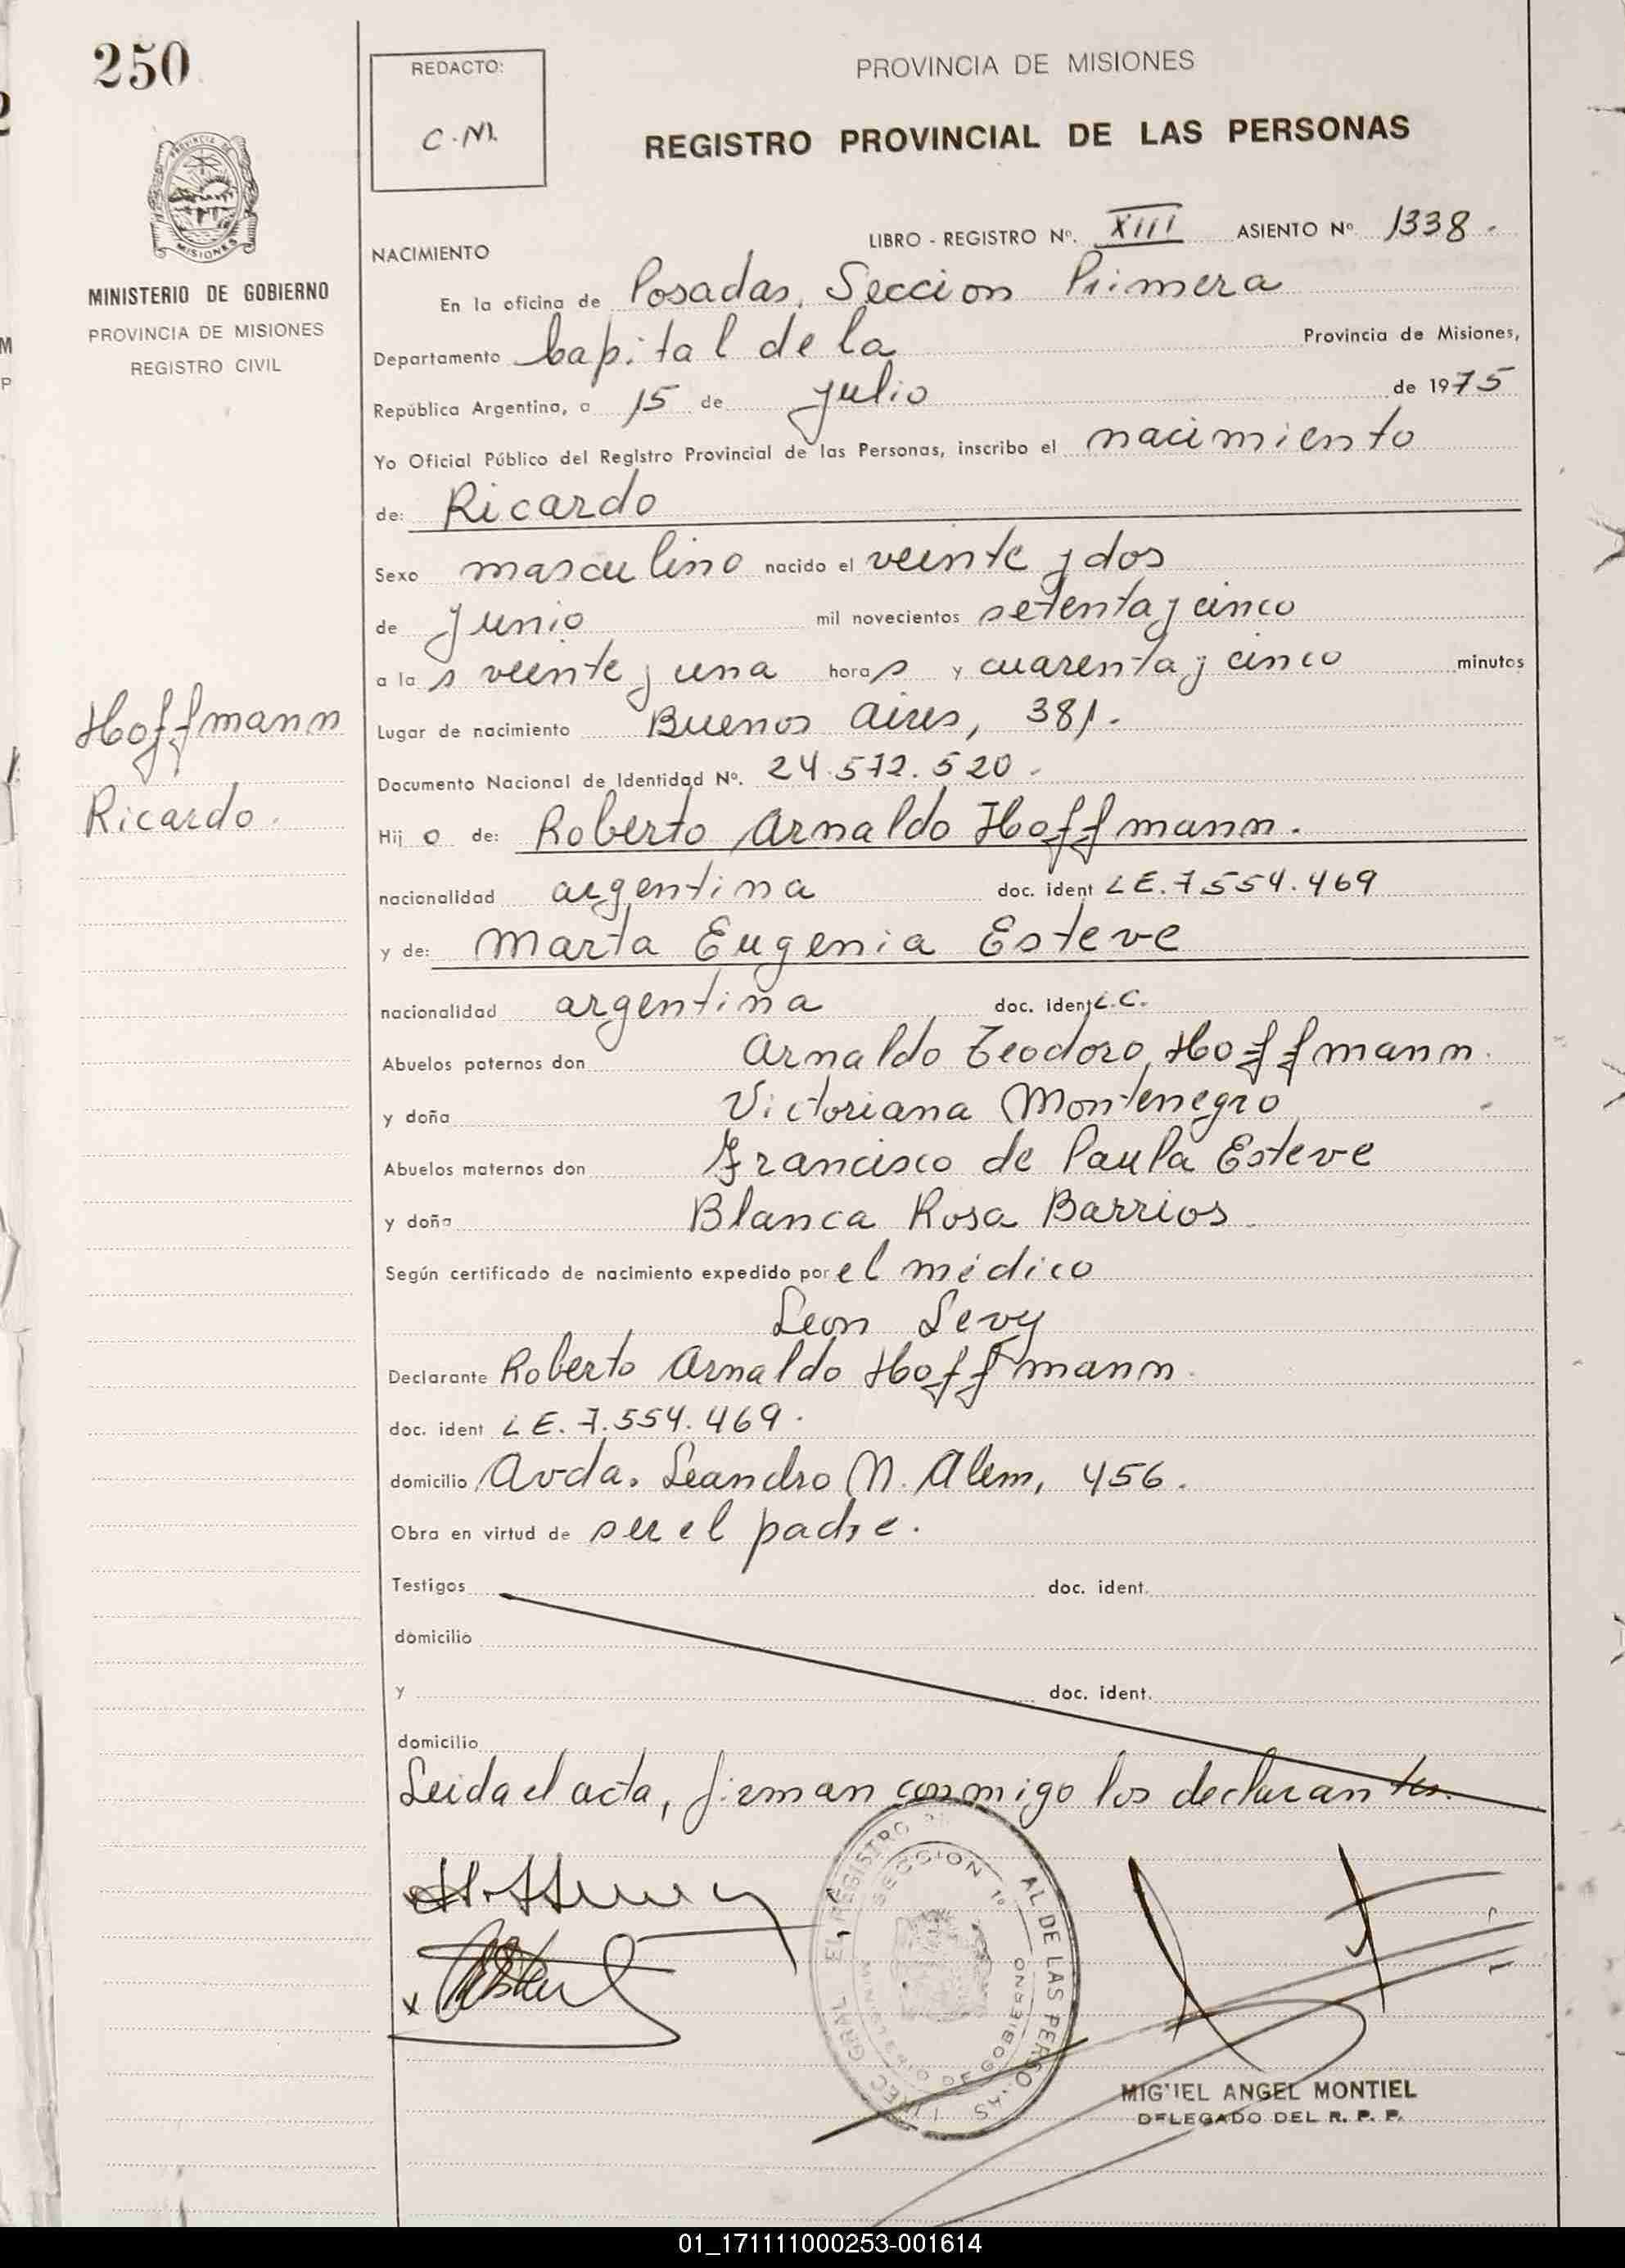 250
REDACTO:
C.M.
PROVINCIA DE MISIONES
REGISTRO PROVINCIAL DE LAS PERSONAS
MISIONES
MINISTERIO DE GOBIERNO
PROVINCIA DE MISIONES
REGISTRO CIVIL
LIBRO - REGISTRO Nº. XIII ASIENTO Nº 1338.
NACIMIENTO
En la oficina de Posadas, Seccion Primera
Departamento Capital de la Provincia de Misiones,
República Argentina, a 15 de julio de 1975
Yo Oficial Público del Registro Provincial de las Personas, inscribo el nacimiento
de: Ricardo
Sexo masculino nacido el veinte y dos
de Junio mil novecientos setenta y cinco
a la s veinte y una hora s y cuarenta y cinco minutos
Hoffmann
Ricardo.
Lugar de nacimiento Buenos Aires, 381.
Documento Nacional de Identidad Nº. 24.572.520.
Hij o de: Roberto Arnaldo Hoffmann.
nacionalidad argentina doc. ident LE. 7.554.469
y de: Marta Eugenia Esteve
nacionalidad argentina doc. ident L.C.
Abuelos paternos don Arnaldo Teodoro Hoffmann.
y doña Victoriana Montenegro
Abuelos maternos don Francisco de Paula Esteve
y doña Blanca Rosa Barrios.
Según certificado de nacimiento expedido por el médico
Leon Levy
Declarante Roberto Arnaldo Hoffmann.
doc. ident LE. 7.554.469.
domicilio Avda. Leandro N. Alem, 456.
Obra en virtud de ser el padre.
Testigos doc. ident.
domicilio
y doc. ident.
domicilio
Leida el acta, firman conmigo los declarantes.
SECCION 1ª
AL DE LAS PERSONAS
MINISTERIO DE GOBIERNO
MIGUEL ANGEL MONTIEL
DELEGADO DEL R. P. P.
01_171111000253-001614